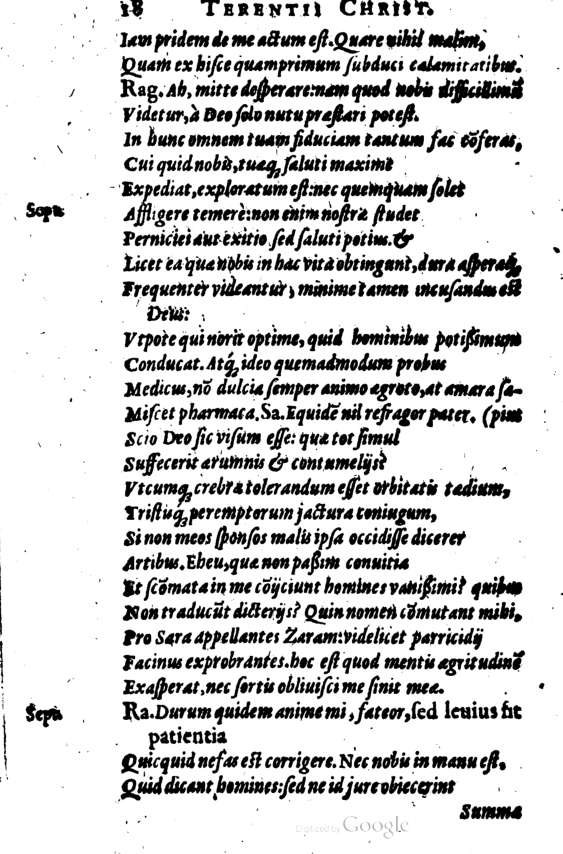 18 TERENTII CHRIST.
Iam pridem de me actum est. Quare nihil malim,
Quam ex hisce quamprimum subduci calamitatibus.
Rag. Ah, mitte desperare: nam quod nobis difficillimū
Videtur, à Deo solo nutu præstari potest.
In hunc omnem tuam fiduciam tantum fac cōferas,
Cui quid nobis, tuæq; saluti maximè
Expediat, exploratum est: nec quemquam solet
Affligere temerè: non enim nostræ studet
Perniciei aut exitio sed saluti potius. &
Licet ea quæ nobis in hac vita obtingunt, dura asperaq;
Frequenter videantur, minime tamen incusandus est
Deus:
Vtpote qui norit optime, quid hominibus potißimum
Conducat. Atq; ideo quemadmodum probus
Medicus, nō dulcia semper animo ægroto, at amara sæ-
Miscet pharmaca. Sa. Equidē nil refragor pater. (pius
Scio Deo sic visum esse: quæ tot simul
Suffecerit ærumnis & contumelijs?
Vtcumq; crebræ tolerandum esset orbitatis tædium,
Tristiuq; peremptorum jactura coniugum,
Si non meos sponsos malis ipsa occidisse dicerer
Artibus. Eheu, quæ non paßim convitia
Et scōmata in me cōijciunt homines vanißimi? quibus
Non traducūt dicterijs? Quin nomen cōmutant mihi,
Pro Sara appellantes Zaram: videlicet parricidij
Facinus exprobrantes. hoc est quod mentis ægritudinē
Exasperat, nec sortis oblivisci me sinit meæ.
Ra. Durum quidem anime mi, fateor, sed levius fit
patientia
Quicquid nefas est corrigere. Nec nobis in manu est,
Quid dicant homines: sed ne id jure obiecerint
Summa
Sapiē
Septē
Digitized by Google